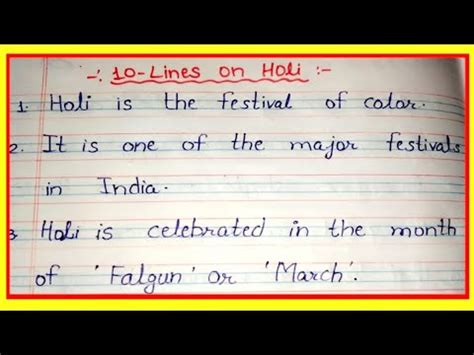 -: 10-Lines on Holi :-
1. Holi is the festival of color.
2. It is one of the major festivals
in India.
3. Holi is celebrated in the month
of 'Falgun' or 'March'.